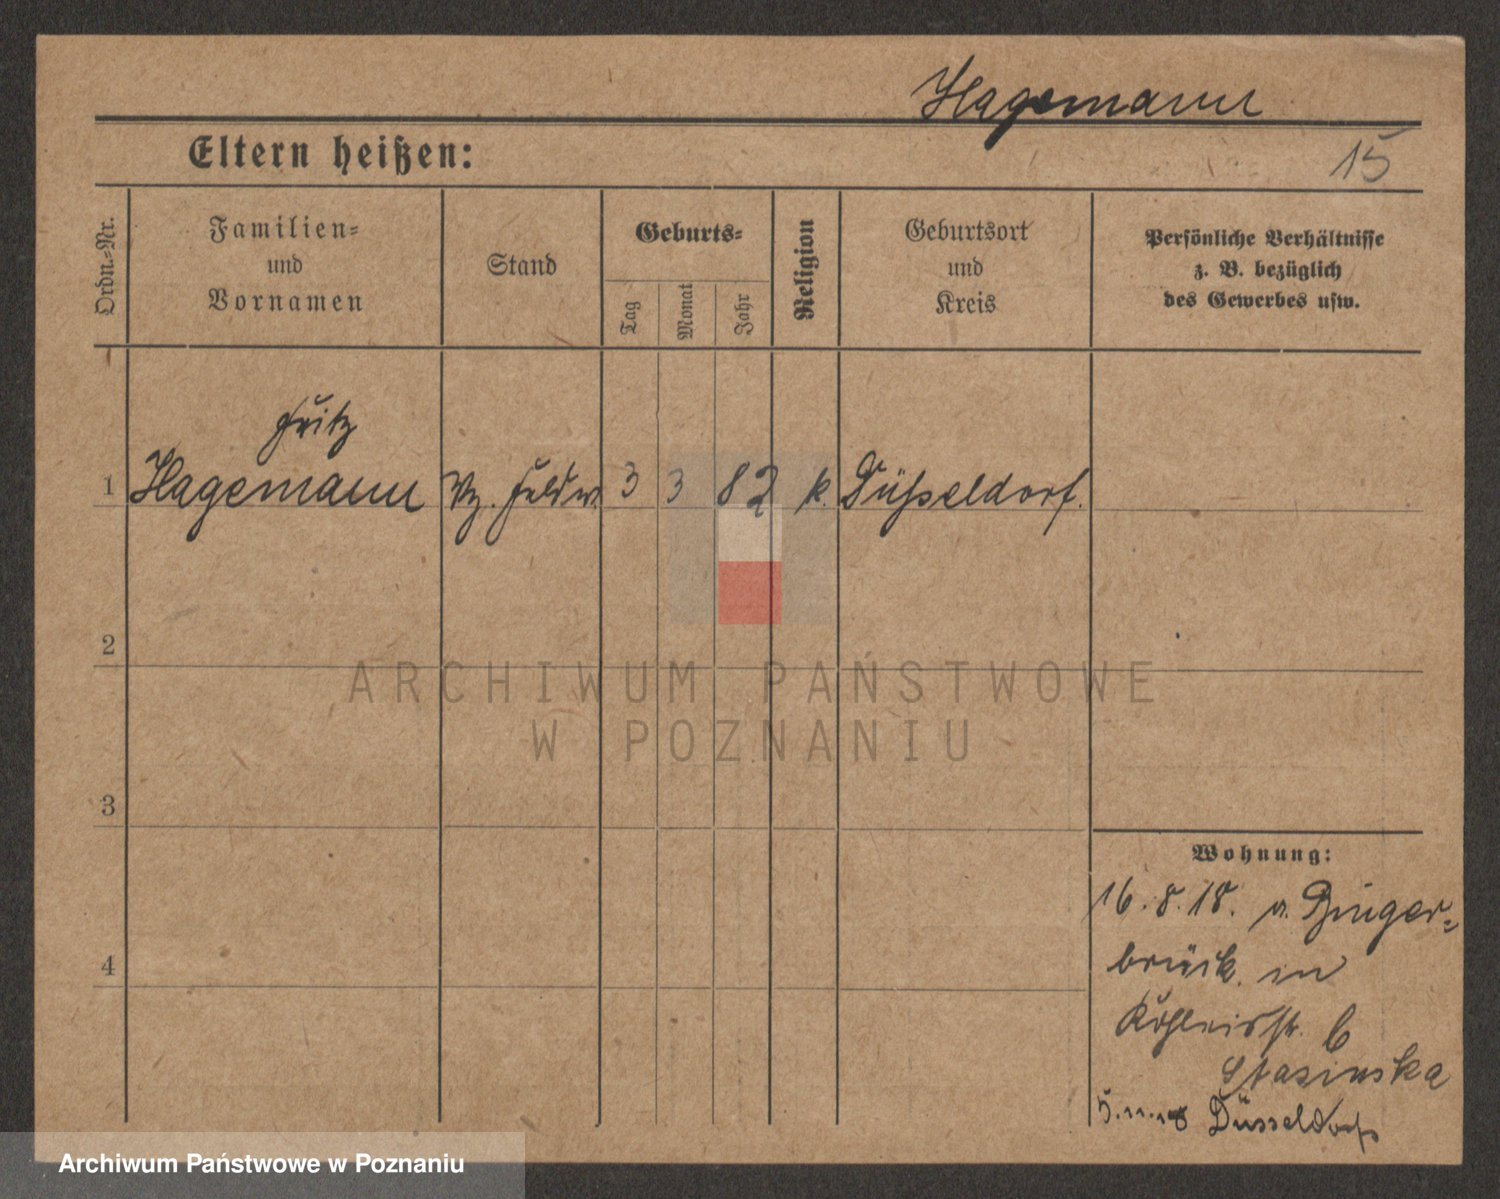 Hagemann
15
Eltern heißen:
Ordn.-Nr.
Familien-
und
Vornamen
Stand
Geburts-
Tag
Monat
Jahr
Religion
Geburtsort
und
Kreis
Persönliche Verhältnisse
z. B. bezüglich
des Gewerbes usw.
Fritz
1 Hagemann Vz. Feldw. 3 3 82 k. Düsseldorf.
2
3
4
Wohnung:
16.8.18. v. Binger-
brück. in
6
Stasinska
5.11.18 Düsseldorf
ARCHIWUM PAŃSTWOWE
W POZNANIU
Archiwum Państwowe w Poznaniu